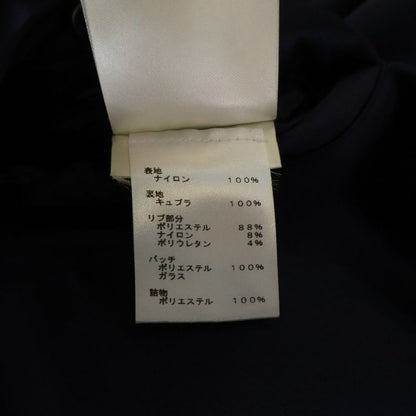 表地
ナイロン 100%
裏地
キュプラ 100%
リブ部分
ポリエステル 88%
ナイロン 8%
ポリウレタン 4%
パッチ
ポリエステル 100%
ガラス
詰物
ポリエステル 100%